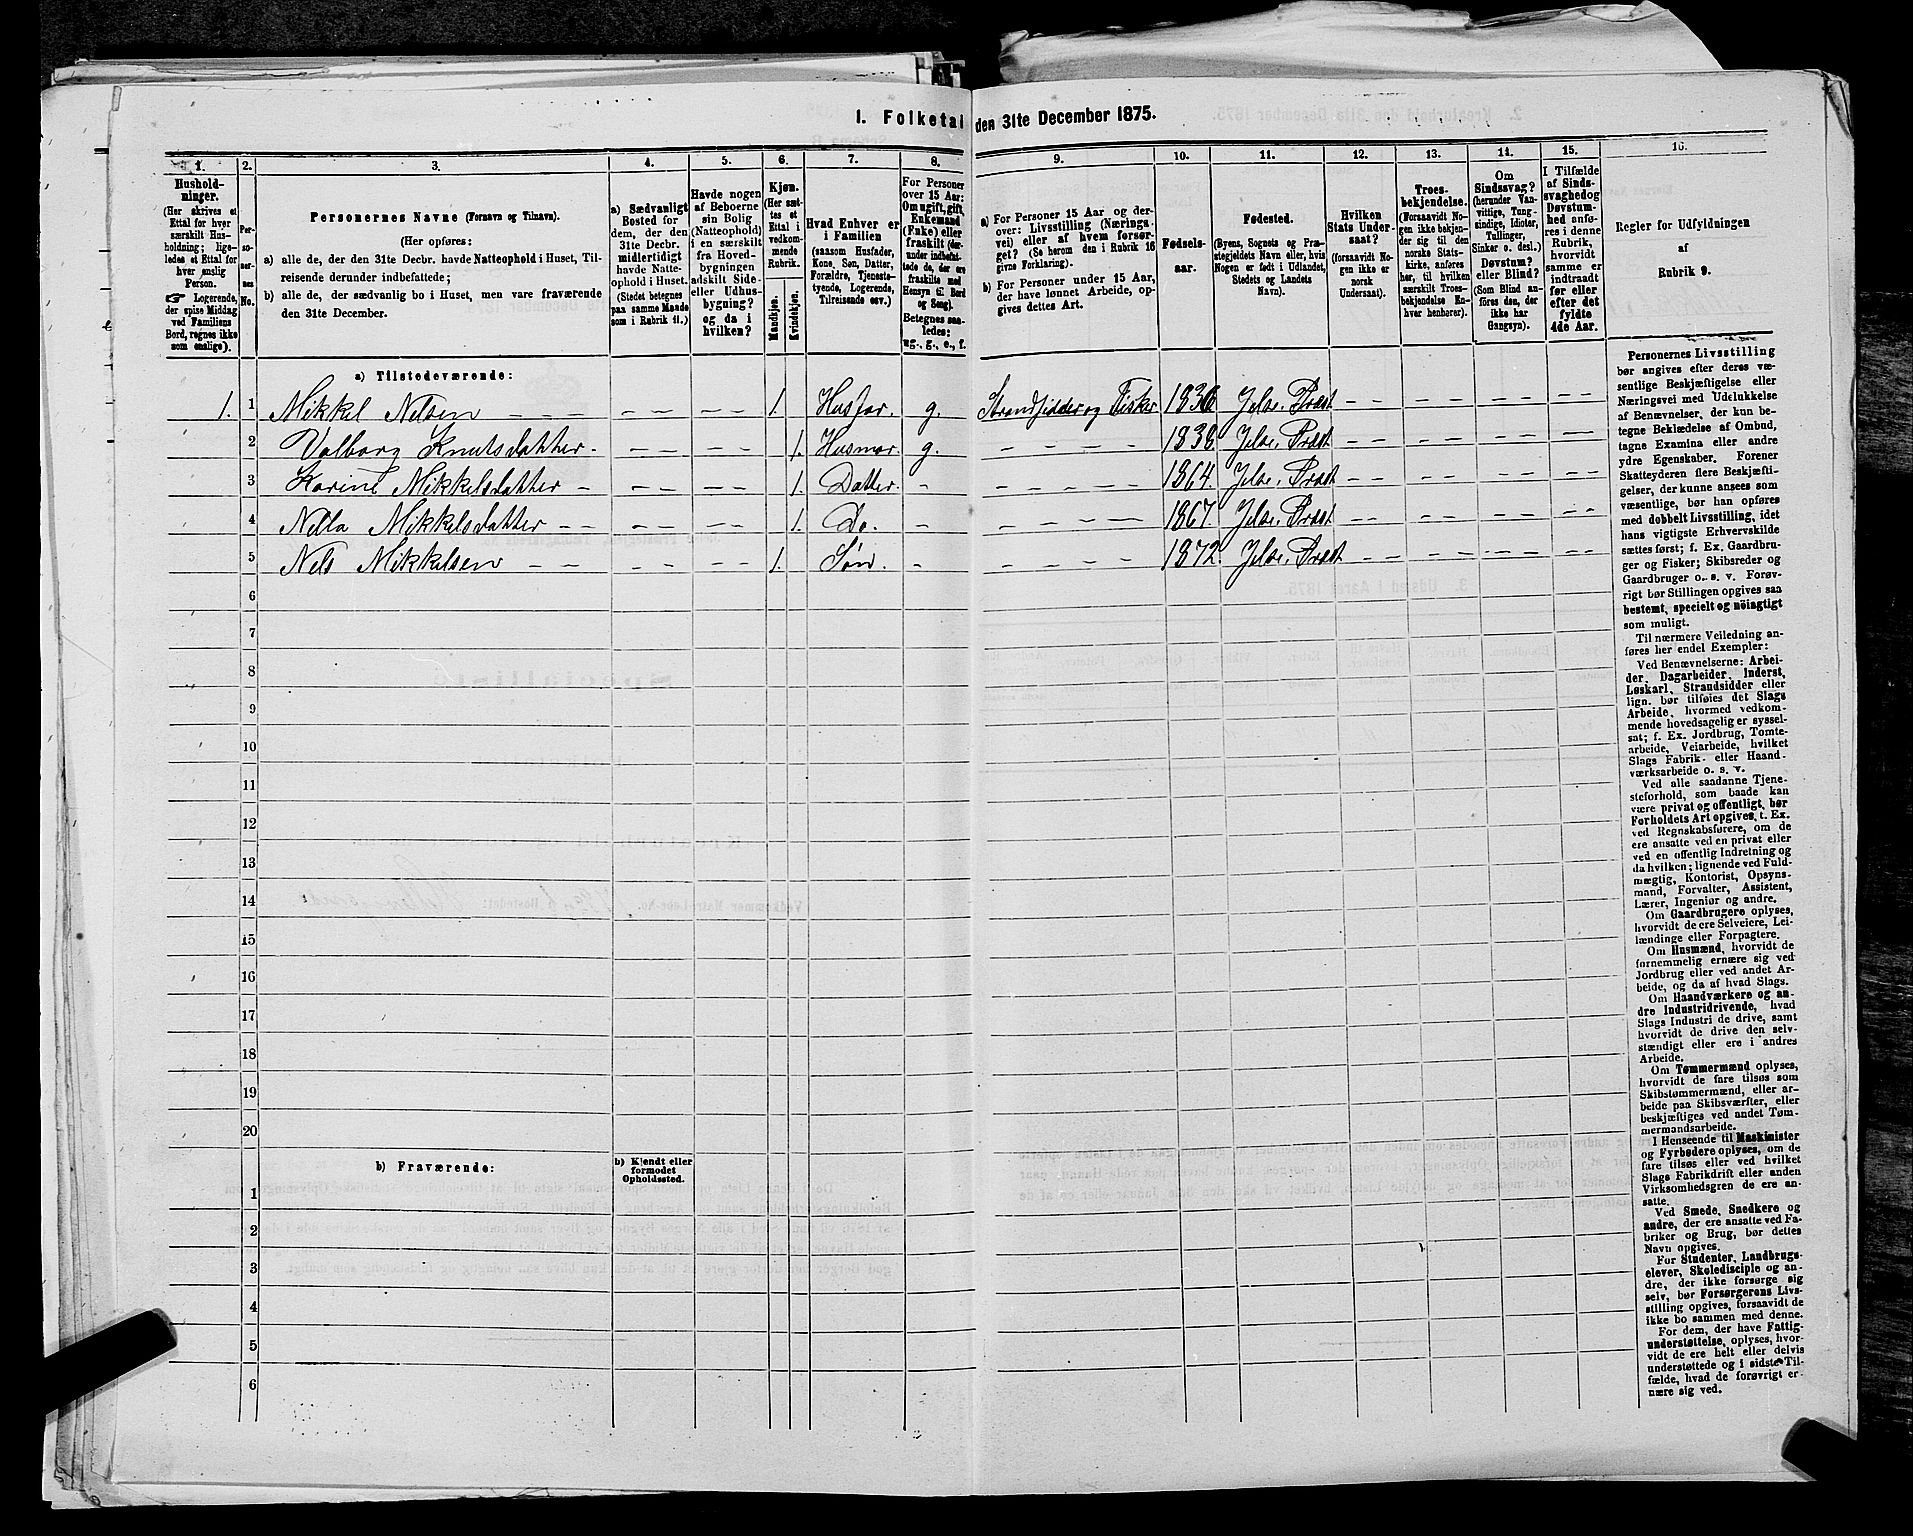 1. Folketal den 31te December 1875.
1. 2. 3. 4. 5. 6. 7. 8. 9. 10. 11. 12. 13. 14. 15. 16.
Hushold-
ninger.
(Her skrives et
Ettal for hver
særskilt Hus-
holdning; lige-
ledes et Ettal for
hver enslig
Person.
☞ Logerende,
der spise Middag
ved Familiens
Bord, regnes ikke
som enslige).
Per-
so-
ner-
nes
No.
Personernes Navne (Fornavn og Tilnavn).
(Her opføres:
a) alle de, der den 31te Decbr. havde Natteophold i Huset, Til-
reisende derunder indbefattede;
b) alle de, der sædvanlig bo i Huset, men vare fraværende
den 31te December.
a) Sædvanligt
Bosted for
dem, der den
31te Decbr.
midlertidigt
havde Natte-
ophold i Huset.
(Stedet betegnes
paa samme Maade
som i Rubrik 11.)
Havde nogen
af Beboerne
sin Bolig
(Natteophold)
i en særskilt
fra Hoved-
bygningen
adskilt Side-
eller Udhus-
bygning?
og da i
hvilken?
Kjøn.
(Her sæt-
tes et
Ettal i
vedkom-
mende
Rubrik.
Mandkjøn.
Kvindekjøn.
Hvad Enhver er
i Familien
(saasom Husfader,
Kone, Søn, Datter,
Forældre, Tjeneste-
tyende, Logerende,
Tilreisende osv.)
For Personer
over 15 Aar:
Om ugift, gift,
Enkemand
(Enke) eller
fraskilt (der-
under indbefat-
tede de, der ere
fraskilte med
Hensyn til Bord
og Seng).
Betegnes saa-
ledes:
ug., g., e., f.
a) For Personer 15 Aar og der-
over: Livsstilling (Nærings-
vei) eller af hvem forsør-
get? (Se herom den i Rubrik 16
givne Forklaring).
b) For Personer under 15 Aar,
der have lønnet Arbeide, op-
gives dettes Art.
Fødsels-
aar.
Fødested.
(Byens, Sognets og Præ-
stegjeldets Navn eller, hvis
Nogen er født i Udlandet,
Stedets og Landets
Navn).
Hvilken
Stats Under-
saat?
(forsaavidt No-
gen ikke er
norsk
Undersaat).
Troes-
bekjendelse.
(Forsaavidt No-
gen ikke bekjen-
der sig til den
norske Stats-
kirke, anføres
her, til hvilken
særskilt Troes-
bekjendelse En-
hver henhører).
Om
Sindssvag?
(herunder Van-
vittige, Tung-
sindige, Idioter,
Tullinger,
Sinker o. desl.)
Døvstum?
eller Blind?
(Som Blind an-
føres den, der
ikke har
Gangsyn).
I Tilfælde
af Sinds-
svaghed og
Døvstum-
hed anfø-
res i denne
Rubrik,
hvorvidt
samme er
indtraadt
før eller
efter det
fyldte
4de Aar.
Regler for Udfyldningen
af
Rubrik 9.
a) Tilstedeværende:
1. 1 Mikkel Nelsen – – – – – – – 1. Husfar. g. Strandsidder og Fisker 1836 Jelse. Præst – – – – – – – –
2 Valborg Knutsdatter. – – – – 1. Husmor. g. – – – 1838. Jelse. Præst – – – – – – – –
3 Karine Mikkelsdatter – – – – – 1. Datter. – – – – – 1864. Jelse. Præst – – – – – – – –
4 Nella Mikkelsdatter – – – – – – 1. Do. – – – – – 1867. Jelse. Præst – – – – – – – –
5 Nels Mikkelsen – – – – – – 1. Søn. – – – – – 1872. Jelse. Præst – – – – – – – –
6
7
8
9
10
11
12
13
14
15
16
17
18
19
20
b) Fraværende:
b) Kjendt eller
formodet
Opholdssted.
1
2
3
4
5
6
Personernes Livsstilling
bør angives efter deres væ-
sentlige Beskjæftigelse eller
Næringsvei med Udelukkelse
af Benævnelser, der kun be-
tegne Beklædelse af Ombud,
tagne Examina eller andre
ydre Egenskaber. Forener
Skatteyderen flere Beskjæfti-
gelser, der kunne ansees som
væsentlige, bør han opføres
med dobbelt Livsstilling, idet
hans vigtigste Erhvervskilde
sættes først; f. Ex. Gaardbru-
ger og Fisker; Skibsreder og
Gaardbruger o. s. v. Forøv-
rigt bør Stillingen opgives saa
bestemt, specielt og nöiagtigt
som muligt.
Til nærmere Veiledning an-
føres her endel Exempler:
Ved Benævnelserne: Arbei-
der, Dagarbeider, Inderst,
Løskarl, Strandsidder eller
lign. bør tilføies det Slags
Arbeide, hvormed vedkom-
mende hovedsagelig er syssel-
sat; f. Ex. Jordbrug, Tomte-
arbeide, Veiarbeide, hvilket
Slags Fabrik- eller Haand-
værksarbeide o. s. v.
Ved alle saadanne Tjene-
steforhold, som baade kan
være privat og offentligt, bør
Forholdets Art opgives, t. Ex.
ved Regnskabsførere, om de
ere ansatte ved en privat eller
ved en offentlig Indretning og
da hvilken; lignende ved Fuld-
mægtig, Kontorist, Opsyns-
mand, Forvalter, Assistent,
Lærer, Ingeniør og andre.
Om Gaardbrugere oplyses,
hvorvidt de ere Selveiere, Lei-
lændinge eller Forpagtere.
Om Husmænd, hvorvidt de
fornemmelig ernære sig ved
Jordbrug eller ved andet Ar-
beide, og da af hvad Slags.
Om Haandværkere og an-
dre Industridrivende, hvad
Slags Industri de drive, samt
hvorvidt de drive den selv-
stændigt eller ere i andres
Arbeide.
Om Tømmermænd oplyses,
hvorvidt de fare tilsøs som
Skibstømmermænd, eller ar-
beide paa Skibsværfter, eller
beskjæftiges ved andet Tøm-
mermandsarbeide.
I Henseende til Maskinister
og Fyrbødere oplyses, om de
fare tilsøs eller ved hvilket
Slags Fabrikdrift eller anden
Virksomhedsgren de ere an-
satte.
Ved Smede, Snedkere og
andre, der ere ansatte ved Fa-
briker og Brug, bør dettes
Navn opgives.
For Studenter, Landbrugs-
elever, Skoledisciple og an-
dre, der ikke forsørge sig
selv, bør Forsørgerens Livs-
stilling opgives, forsaavidt de
ikke bo sammen med denne.
For dem, der have Fattig-
understøttelse, oplyses, hvor-
vidt de ere helt eller delvis
understøttede og i sidste Til-
fælde, hvad de forøvrigt er-
nære sig ved.